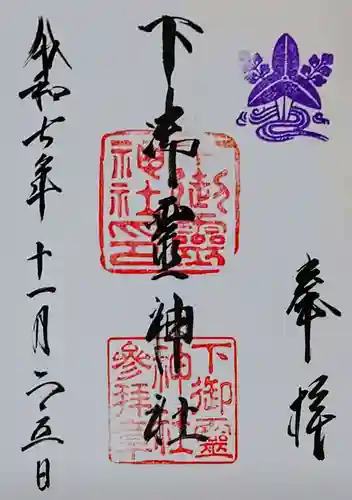 奉拝
下御霊神社
下御靈神社印
下御霊神社参拝章
令和七年十一月二五日